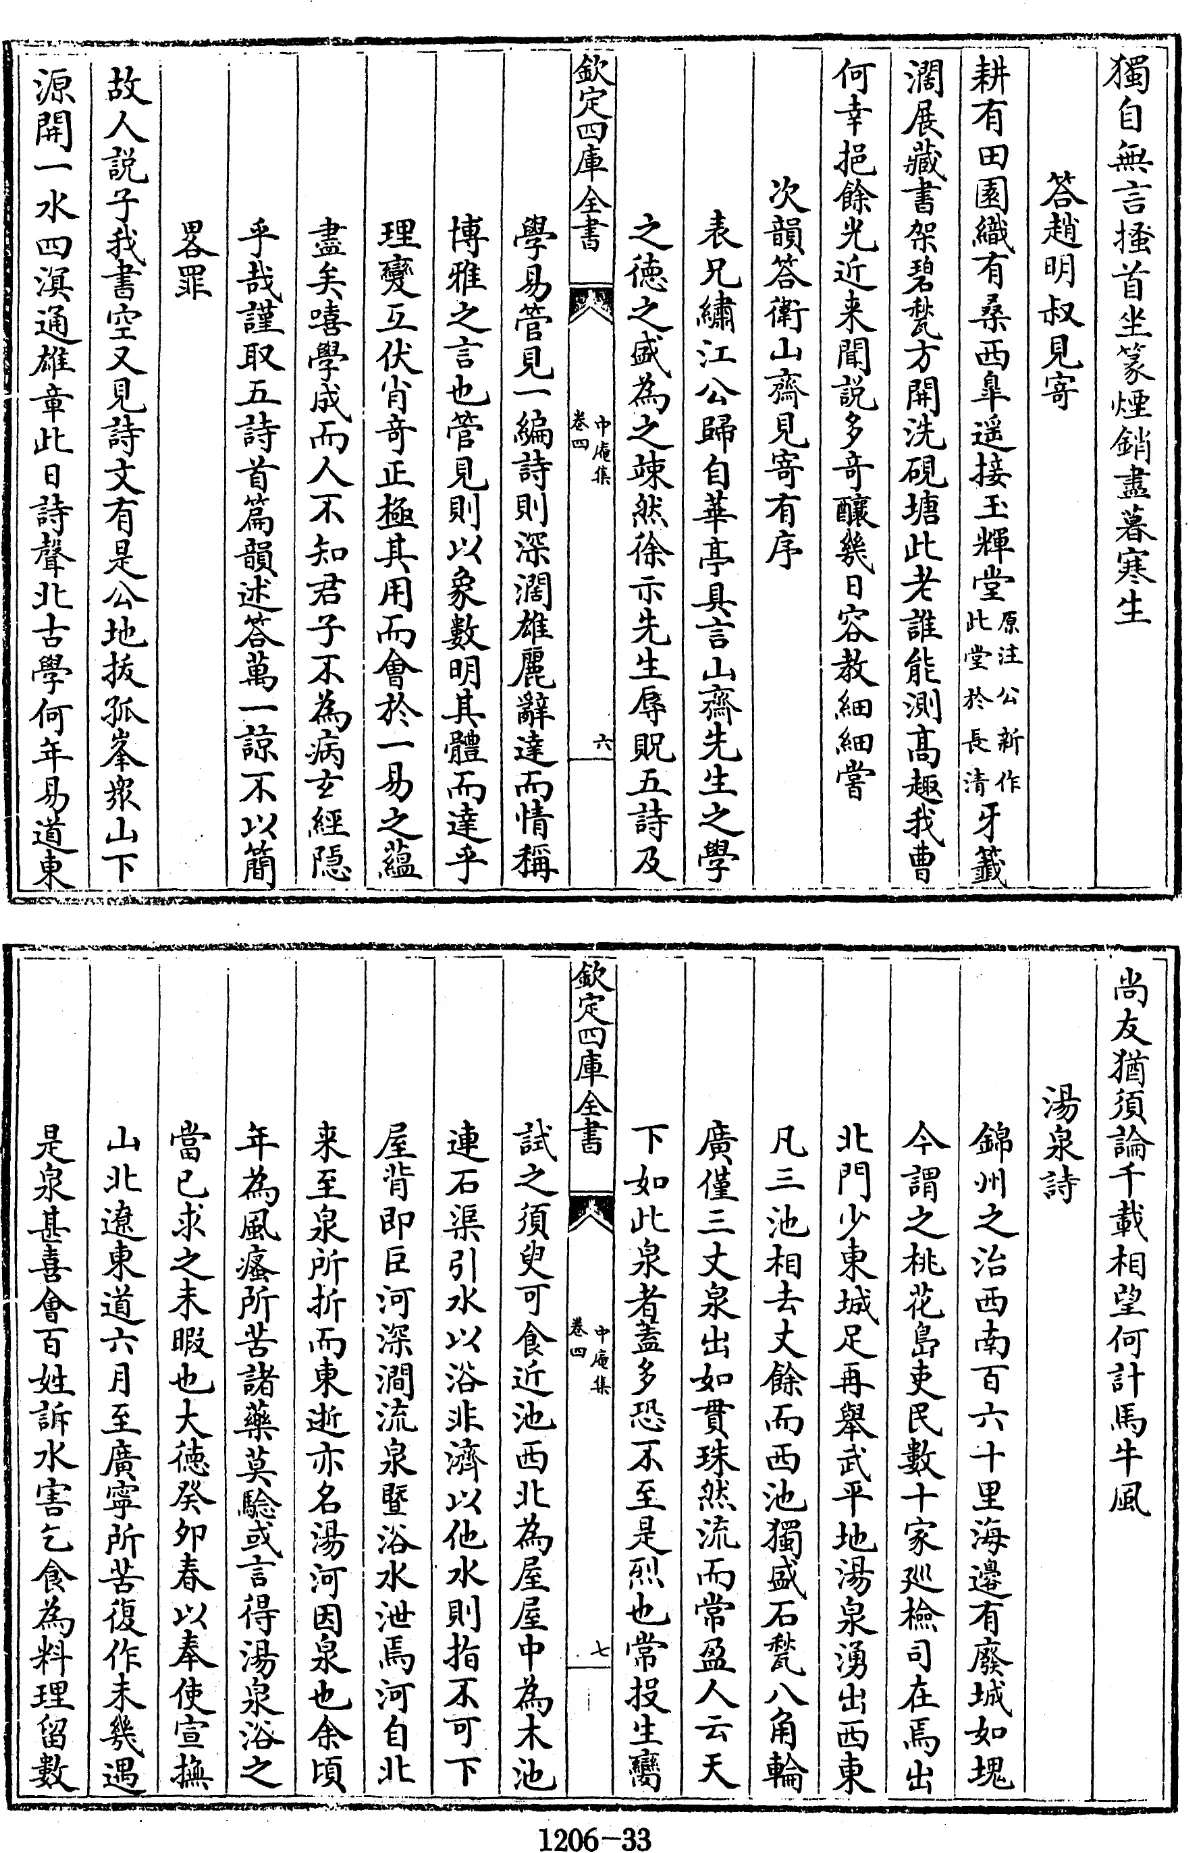 獨自無言搔首坐篆煙銷盡暮寒生
答趙明叔見寄
耕有田園織有桑西臯遥接玉輝堂原注公新作此堂於長清牙籤
濶展藏書架碧甃方開洗硯塘此老誰能測高趣我曹
何幸挹餘光近来聞說多竒釀幾日容教細細嘗
次韻答衛山齋見寄有序
表兄繡江公歸自華亭具言山齋先生之學
之徳之盛為之竦然徐示先生辱貺五詩及
欽定四庫全書
中庵集
卷四
六
學易管見一編詩則深濶雄麗辭達而情稱
博雅之言也管見則以象數明其體而達乎
理變互伏肖竒正極其用而㑹於一易之蘊
盡矣嘻學成而人不知君子不為病玄經隠
乎哉謹取五詩首篇韻述答萬一諒不以簡
畧罪
故人説子我書空又見詩文有是公地拔孤峯衆山下
源開一水四溟通雄章此日詩聲北古學何年易道東
尚友猶須論千載相望何計馬牛風
湯泉詩
錦州之治西南百六十里海邊有廢城如塊
今謂之桃花島吏民數十家廵檢司在焉出
北門少東城足再舉武平地湯泉湧出西東
凡三池相去丈餘而西池獨盛石甃八角輪
廣僅三丈泉出如貫珠然流而常盈人云天
下如此泉者蓋多恐不至是烈也常投生臠
欽定四庫全書
中庵集
卷四
七
試之須臾可食近池西北為屋屋中為木池
連石渠引水以浴非濟以他水則指不可下
屋背即巨河深澗流泉暨浴水泄焉河自北
来至泉所折而東逝亦名湯河因泉也余頃
年為風瘙所苦諸藥莫驗或言得湯泉浴之
當已求之未暇也大徳癸夘春以奉使宣撫
山北遼東道六月至廣寧所苦復作未幾遇
是泉甚喜㑹百姓訴水害乞食為料理留數
1206-33